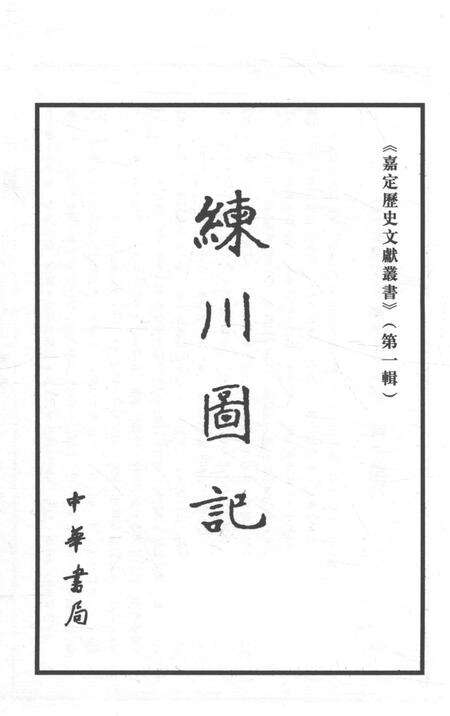 《嘉定歷史文獻叢書》（第一輯）
練川圖記
中華書局